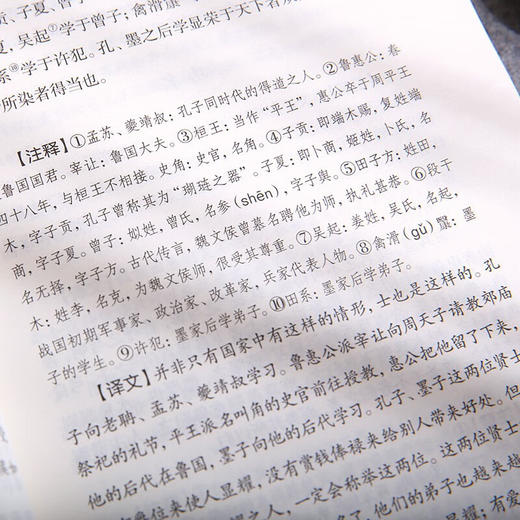 贡、子夏、曾
夏，吴起⑦学于曾子；禽滑釐
系⑩学于许犯。孔、墨之后学显荣于天下者
所染者得当也。
【注释】①孟苏、夔靖叔：孔子同时代的得道之人。②鲁惠公：春
鲁国国君。宰让：鲁国大夫。③桓王：当作“平王”，惠公卒于周平王
四十八年，与桓王不相接。史角：史官，名角。④子贡：即端木赐，复姓端
木，字子贡，孔子曾称其为“瑚琏之器”。子夏：即卜商，姬姓，卜氏，名
商，字子夏。曾子：姒姓，曾氏，名参(shēn)，字子舆。⑤田子方：姓田，
名无择，字子方。古代传言，魏文侯曾慕名聘他为师，执礼甚恭。⑥段干
木：姓李，名克，为魏文侯师，很受其尊重。⑦吴起：姜姓，吴氏，名起，
战国初期军事家、政治家、改革家，兵家代表人物。⑧禽滑(gǔ)釐：墨
子的学生。⑨许犯：墨家后学弟子。⑩田系：墨家后学弟子。
【译文】并非只有国家中有这样的情形，士也是这样的。孔
子向老聃、孟苏、夔靖叔学习。鲁惠公派宰让向周天子请教郊庙
祭祀的礼节，平王派名叫角的史官前往授教，惠公把他留了下来，
他的后代在鲁国，墨子向他的后代学习。孔子、墨子这两位贤士
爵位来使人显耀，没有赏钱俸禄来给别人带来好处。但
显耀之人，一定会称举这两位。这两位贤士
他们的弟子也越来越
显耀；有爱